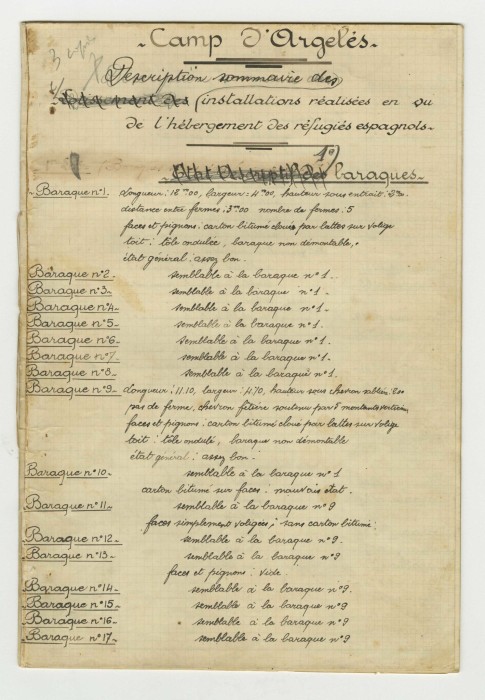 Camp d'Argelès.
Description sommaire des
installations réalisées en vu
de l'hébergement des réfugiés espagnols.
1°) baraques.
Baraque n°1. Longueur: 12m00, largeur: 4m00, hauteur sous entrait:
distance entre fermes: 3m00 nombre de fermes: 5
faces et pignons: carton bitumé cloués par lattes sur volige
toit: tôle ondulée, baraque non démontable,
état général: assez bon.
Baraque n°2. semblable à la baraque n°1.
Baraque n°3. semblable à la baraque n°1.
Baraque n°4. semblable à la baraque n°1.
Baraque n°5. semblable à la baraque n°1.
Baraque n°6. semblable à la baraque n°1.
Baraque n°7. semblable à la baraque n°1.
Baraque n°8. semblable à la baraque n°1.
Baraque n°9. Longueur: 11.10, largeur: 4.70, hauteur sous chevron
pas de ferme, chevron fêtière soutenu par 5 montants
faces et pignons: carton bitumé cloué par lattes sur volige
toit: tôle ondulé, baraque non démontable
état général: assez bon.
Baraque n°10. semblable à la baraque n°1
carton bitumé sur faces: mauvais état.
Baraque n°11. semblable à la baraque n°9
faces simplement voligées, sans carton bitumé.
Baraque n°12. semblable à la baraque n°9.
Baraque n°13. semblable à la baraque n°9
faces et pignons: vide
Baraque n°14. semblable à la baraque n°9.
Baraque n°15. semblable à la baraque n°9
Baraque n°16. semblable à la baraque n°9
Baraque n°17. semblable à la baraque n°9